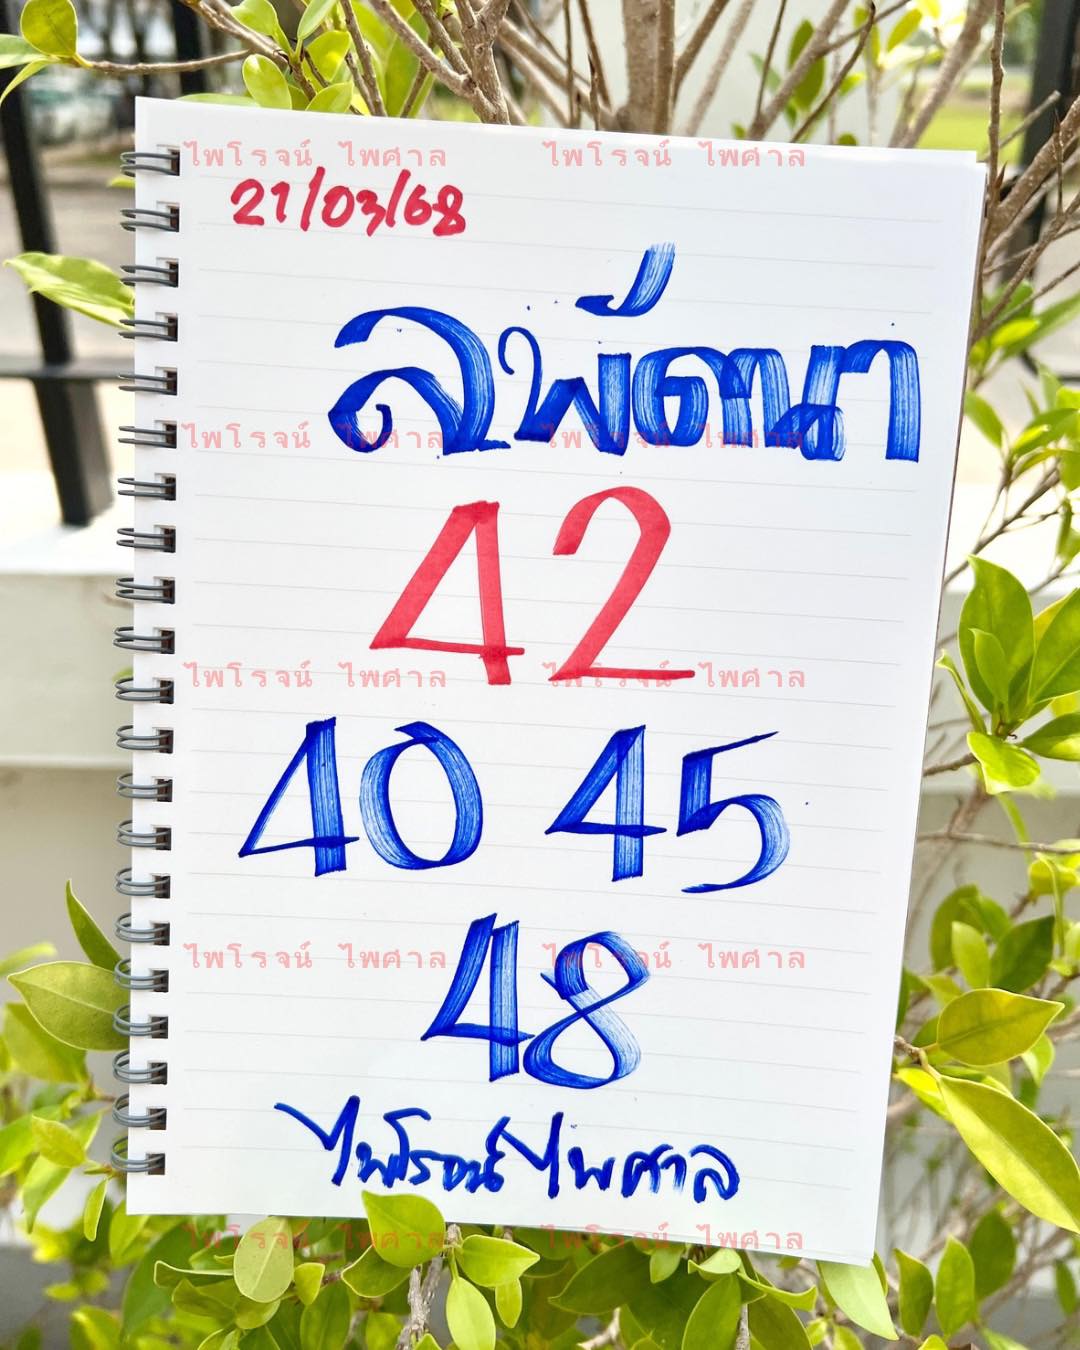 ไพโรจน์ ไพศาล ไพโรจน์ ไพศาล
21/03/68
ลาวพัฒนา
ไพโรจน์ ไพศาล ไพโรจน์ ไพศาล
42
ไพโรจน์ ไพศาล ไพโรจน์ ไพศาล
40 45
ไพโรจน์ ไพศาล ไพโรจน์ ไพศาล
48
ไพโรจน์ ไพศาล
ไพโรจน์ ไพศาล ไพโรจน์ ไพศาล